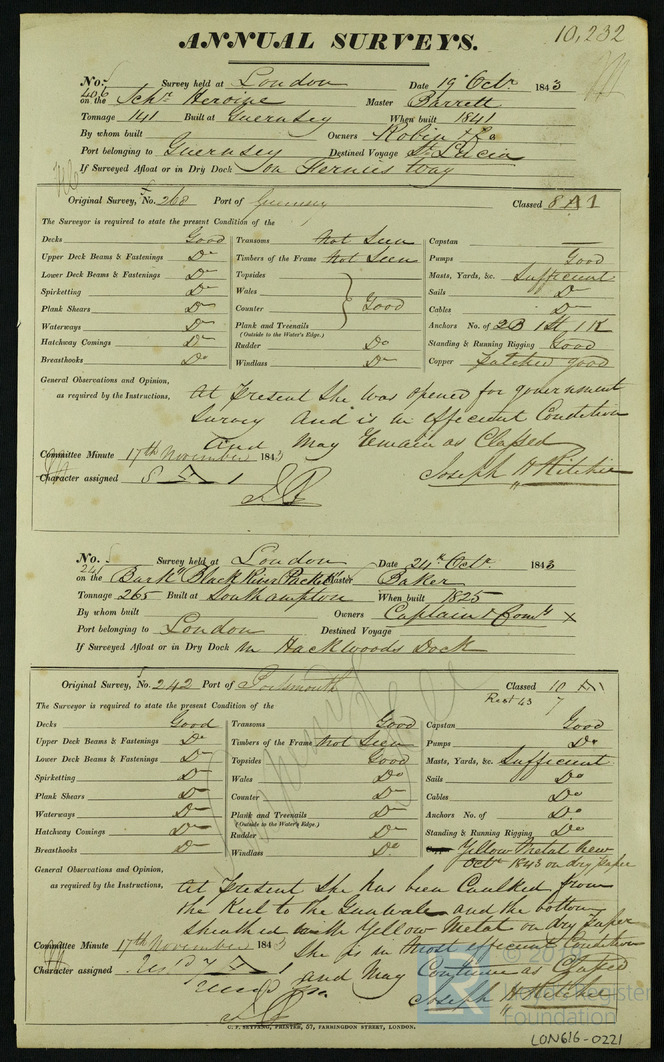 10,232
ANNUAL SURVEYS.
No. 406 Survey held at London Date 19 Octr. 1843
on the Schr Heroine Master Barrett
Tonnage 141 Built at Guernsey When built 1841
By whom built Owners Robin & Co
Port belonging to Guernsey Destined Voyage St Lucia
If Surveyed Afloat or in Dry Dock Way
Original Survey, No. 268 Port of Guernsey Classed 8 A 1
The Surveyor is required to state the present Condition of the
Decks Good Transoms not Seen Capstan —
Upper Deck Beams & Fastenings Do Timbers of the Frame not Seen Pumps Good
Lower Deck Beams & Fastenings Do Topsides Masts, Yards, &c. Sufficient
Spirketting Do Wales Sails Do
Plank Shears Do Counter Good Cables Do
Waterways Do Plank and Treenails Anchors No. of 2B 1St 1K
(Outside to the Water's Edge.)
Hatchway Comings Do Rudder Do Standing & Running Rigging Good
Breasthooks Do Windlass Do Copper Patched good
General Observations and Opinion, At Present She was opened for government
as required by the Instructions, Survey and is in efficient Condition
and May Remain as Classed
Committee Minute 17th November 1843
Joseph H Ritchie
Character assigned 8 A 1
No. 241 Survey held at London Date 24 Octr. 1843
on the Bark Black River Packet Master Baker
Tonnage 265 Built at Southampton When built 1825
By whom built Owners Captain & Comy X
Port belonging to London Destined Voyage
If Surveyed Afloat or in Dry Dock in Hackwoods Dock
Original Survey, No. 242 Port of Portsmouth Classed 10 A1
Rest 43 7
The Surveyor is required to state the present Condition of the
Decks Good Transoms Good Capstan Good
Upper Deck Beams & Fastenings Do Timbers of the Frame not Seen Pumps Do
Lower Deck Beams & Fastenings Do Topsides Good Masts, Yards, &c. Sufficient
Spirketting Do Wales Do Sails Do
Plank Shears Do Counter Do Cables Do
Waterways Do Plank and Treenails Do Anchors No. of Do
(Outside to the Water's Edge.)
Hatchway Comings Do Rudder Do Standing & Running Rigging Do
Breasthooks Do Windlass Do Yellow Metal new
Octr 1843 on dry paper
General Observations and Opinion, At Present She has been Caulked from
as required by the Instructions, the Keel to the Gunwale and the bottom
Sheathed with Yellow Metal on dry paper
Committee Minute 17th November 1843 She is in most efficient Condition
Character assigned and May Continue as Classed
Joseph H Ritchie
C. F. SEYFANG, PRINTER, 57, FARRINGDON STREET, LONDON.
LON616-0221